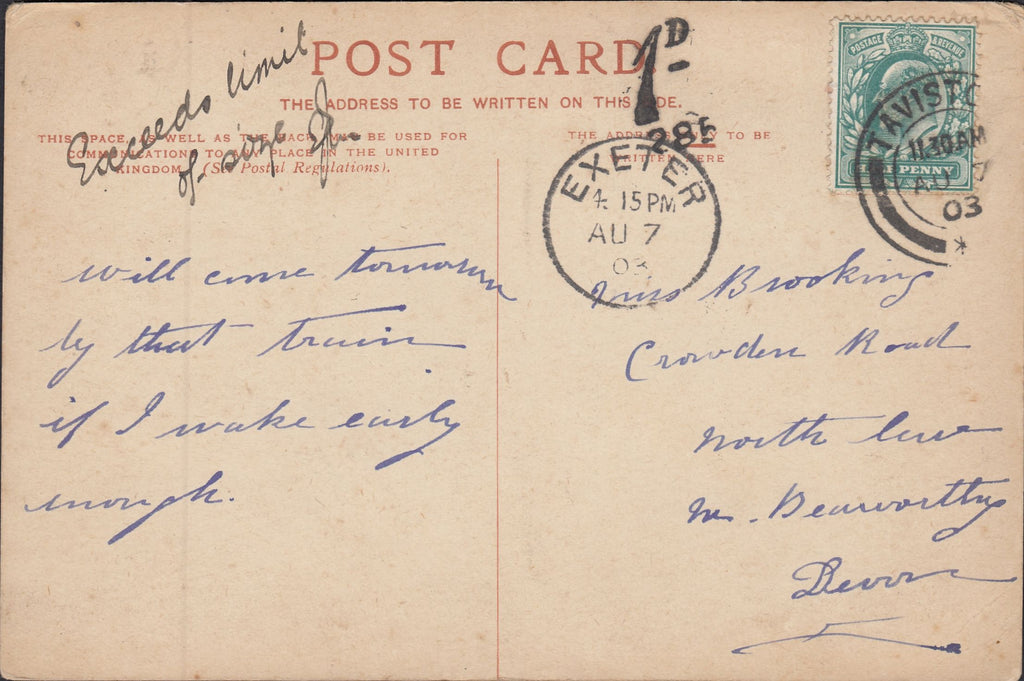 POST CARD
THE ADDRESS TO BE WRITTEN ON THIS SIDE.
Exceeds limit
of size
1D
285
THIS SPACE, AS WELL AS THE BACK, MAY BE USED FOR
COMMUNICATION TO ANY PLACE IN THE UNITED
KINGDOM. (See Postal Regulations).
THE ADDRESS ONLY TO BE
WRITTEN HERE
POSTAGE & REVENUE
PENNY
TAVISTO
11.30AM
AU 7
03
EXETER
4 15PM
AU 7
03
will come tomorrow
by that train
if I wake early
enough.
Miss Brooking
Crowden Road
North Lew
Nr. Beaworthy
Devon